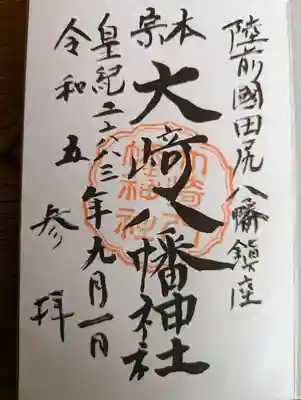 陸前國田尻八幡鎮座
本宗
大崎八幡神社
皇紀二六八三年九月一日
令和五 参拝